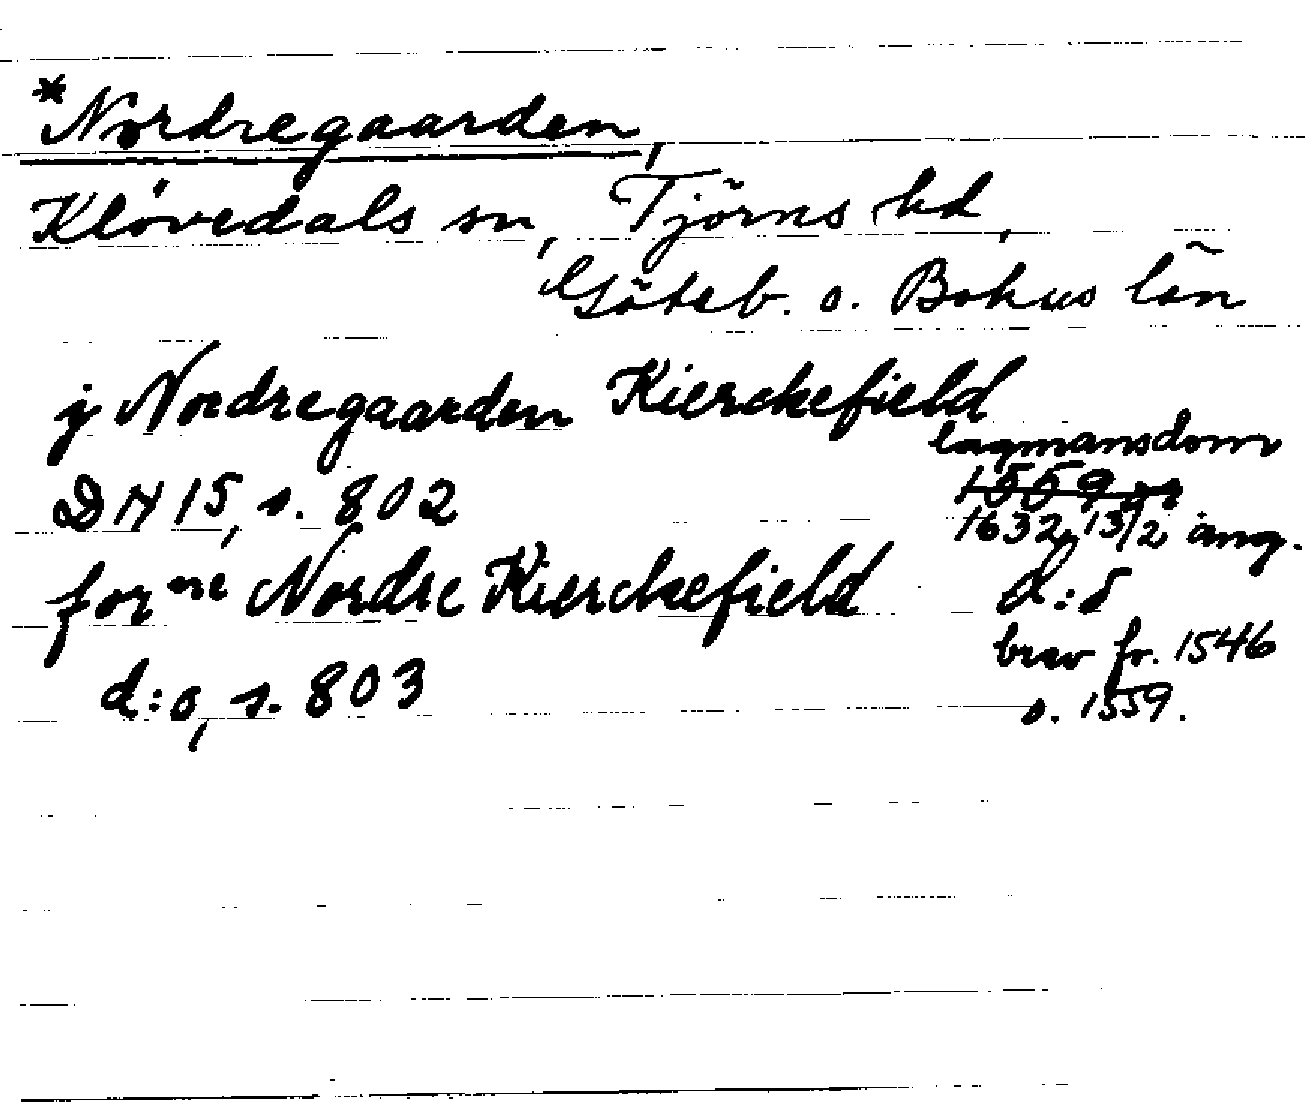 *Nordregaarden,
Klövedals sn, Tjörns hd,
Göteb. o. Bohus län
j Nordregaarden Kierckefield
lagmansdom
DN 15, s. 802
1559
1632 13/2 ang.
forne Nordre Kierckefield
d:o
brev fr. 1546
d:o, s. 803
o. 1559.